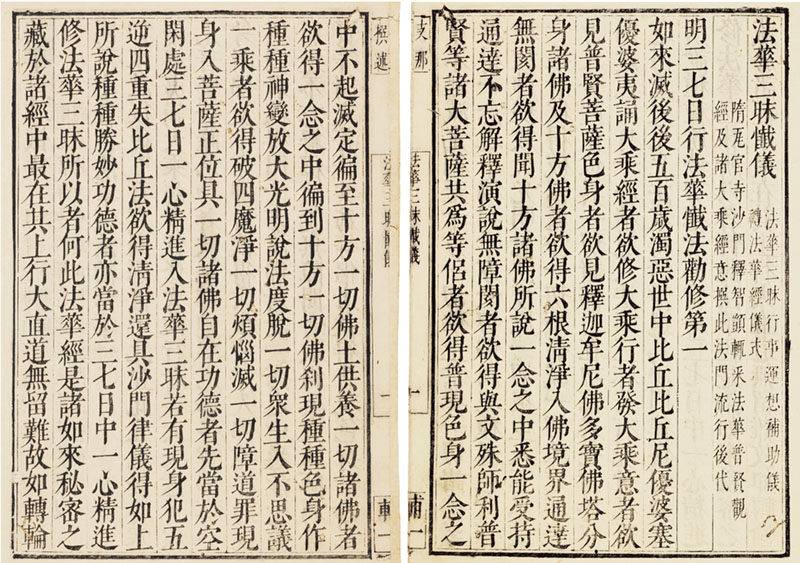 法華三昧懺儀
法華三昧行事運想補助儀
法華經儀式
隋瓦官寺沙門釋智顗輒采法華普賢觀
經及諸大乘經意撰此法門流行後代
明三七日行法華懺法勸修第一
如來滅後後五百歲濁惡世中比丘比丘尼優婆塞
優婆夷誦大乘經者欲修大乘行者發大乘意者欲
見普賢菩薩色身者欲見釋迦牟尼佛多寶佛塔分
身諸佛及十方佛者欲得六根清淨入佛境界通達
無閡者欲得聞十方諸佛所說一念之中悉能受持
通達不忘解釋演說無障閡者欲得與文殊師利普
賢等諸大菩薩共為等侶者欲得普現色身一念之
支那
法華三昧懺儀
一
撰述
法華三昧懺儀
一
中不起滅定徧至十方一切佛土供養一切諸佛者
欲得一念之中徧到十方一切佛刹現種種色身作
種種神變放大光明說法度脫一切衆生入不思議
一乘者欲得破四魔淨一切煩惱滅一切障道罪現
身入菩薩正位具一切諸佛自在功德者先當於空
閑處三七日一心精進入法華三昧若有現身犯五
逆四重失比丘法欲得清淨還具沙門律儀得如上
所說種種勝妙功德者亦當於三七日中一心精進
修法華三昧所以者何此法華經是諸如來秘密之
藏於諸經中最在其上行大直道無留難故如轉輪